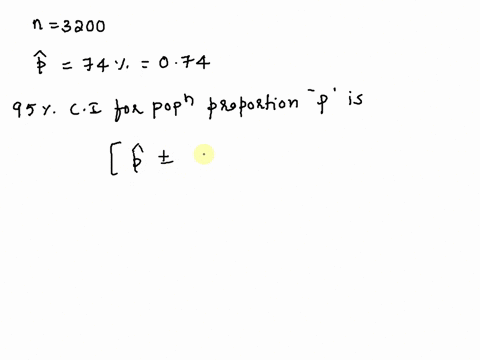 n = 3200
p̂ = 74 % = 0.74
95 %. C.I for popⁿ proportion 'p' is
[ p̂ ±